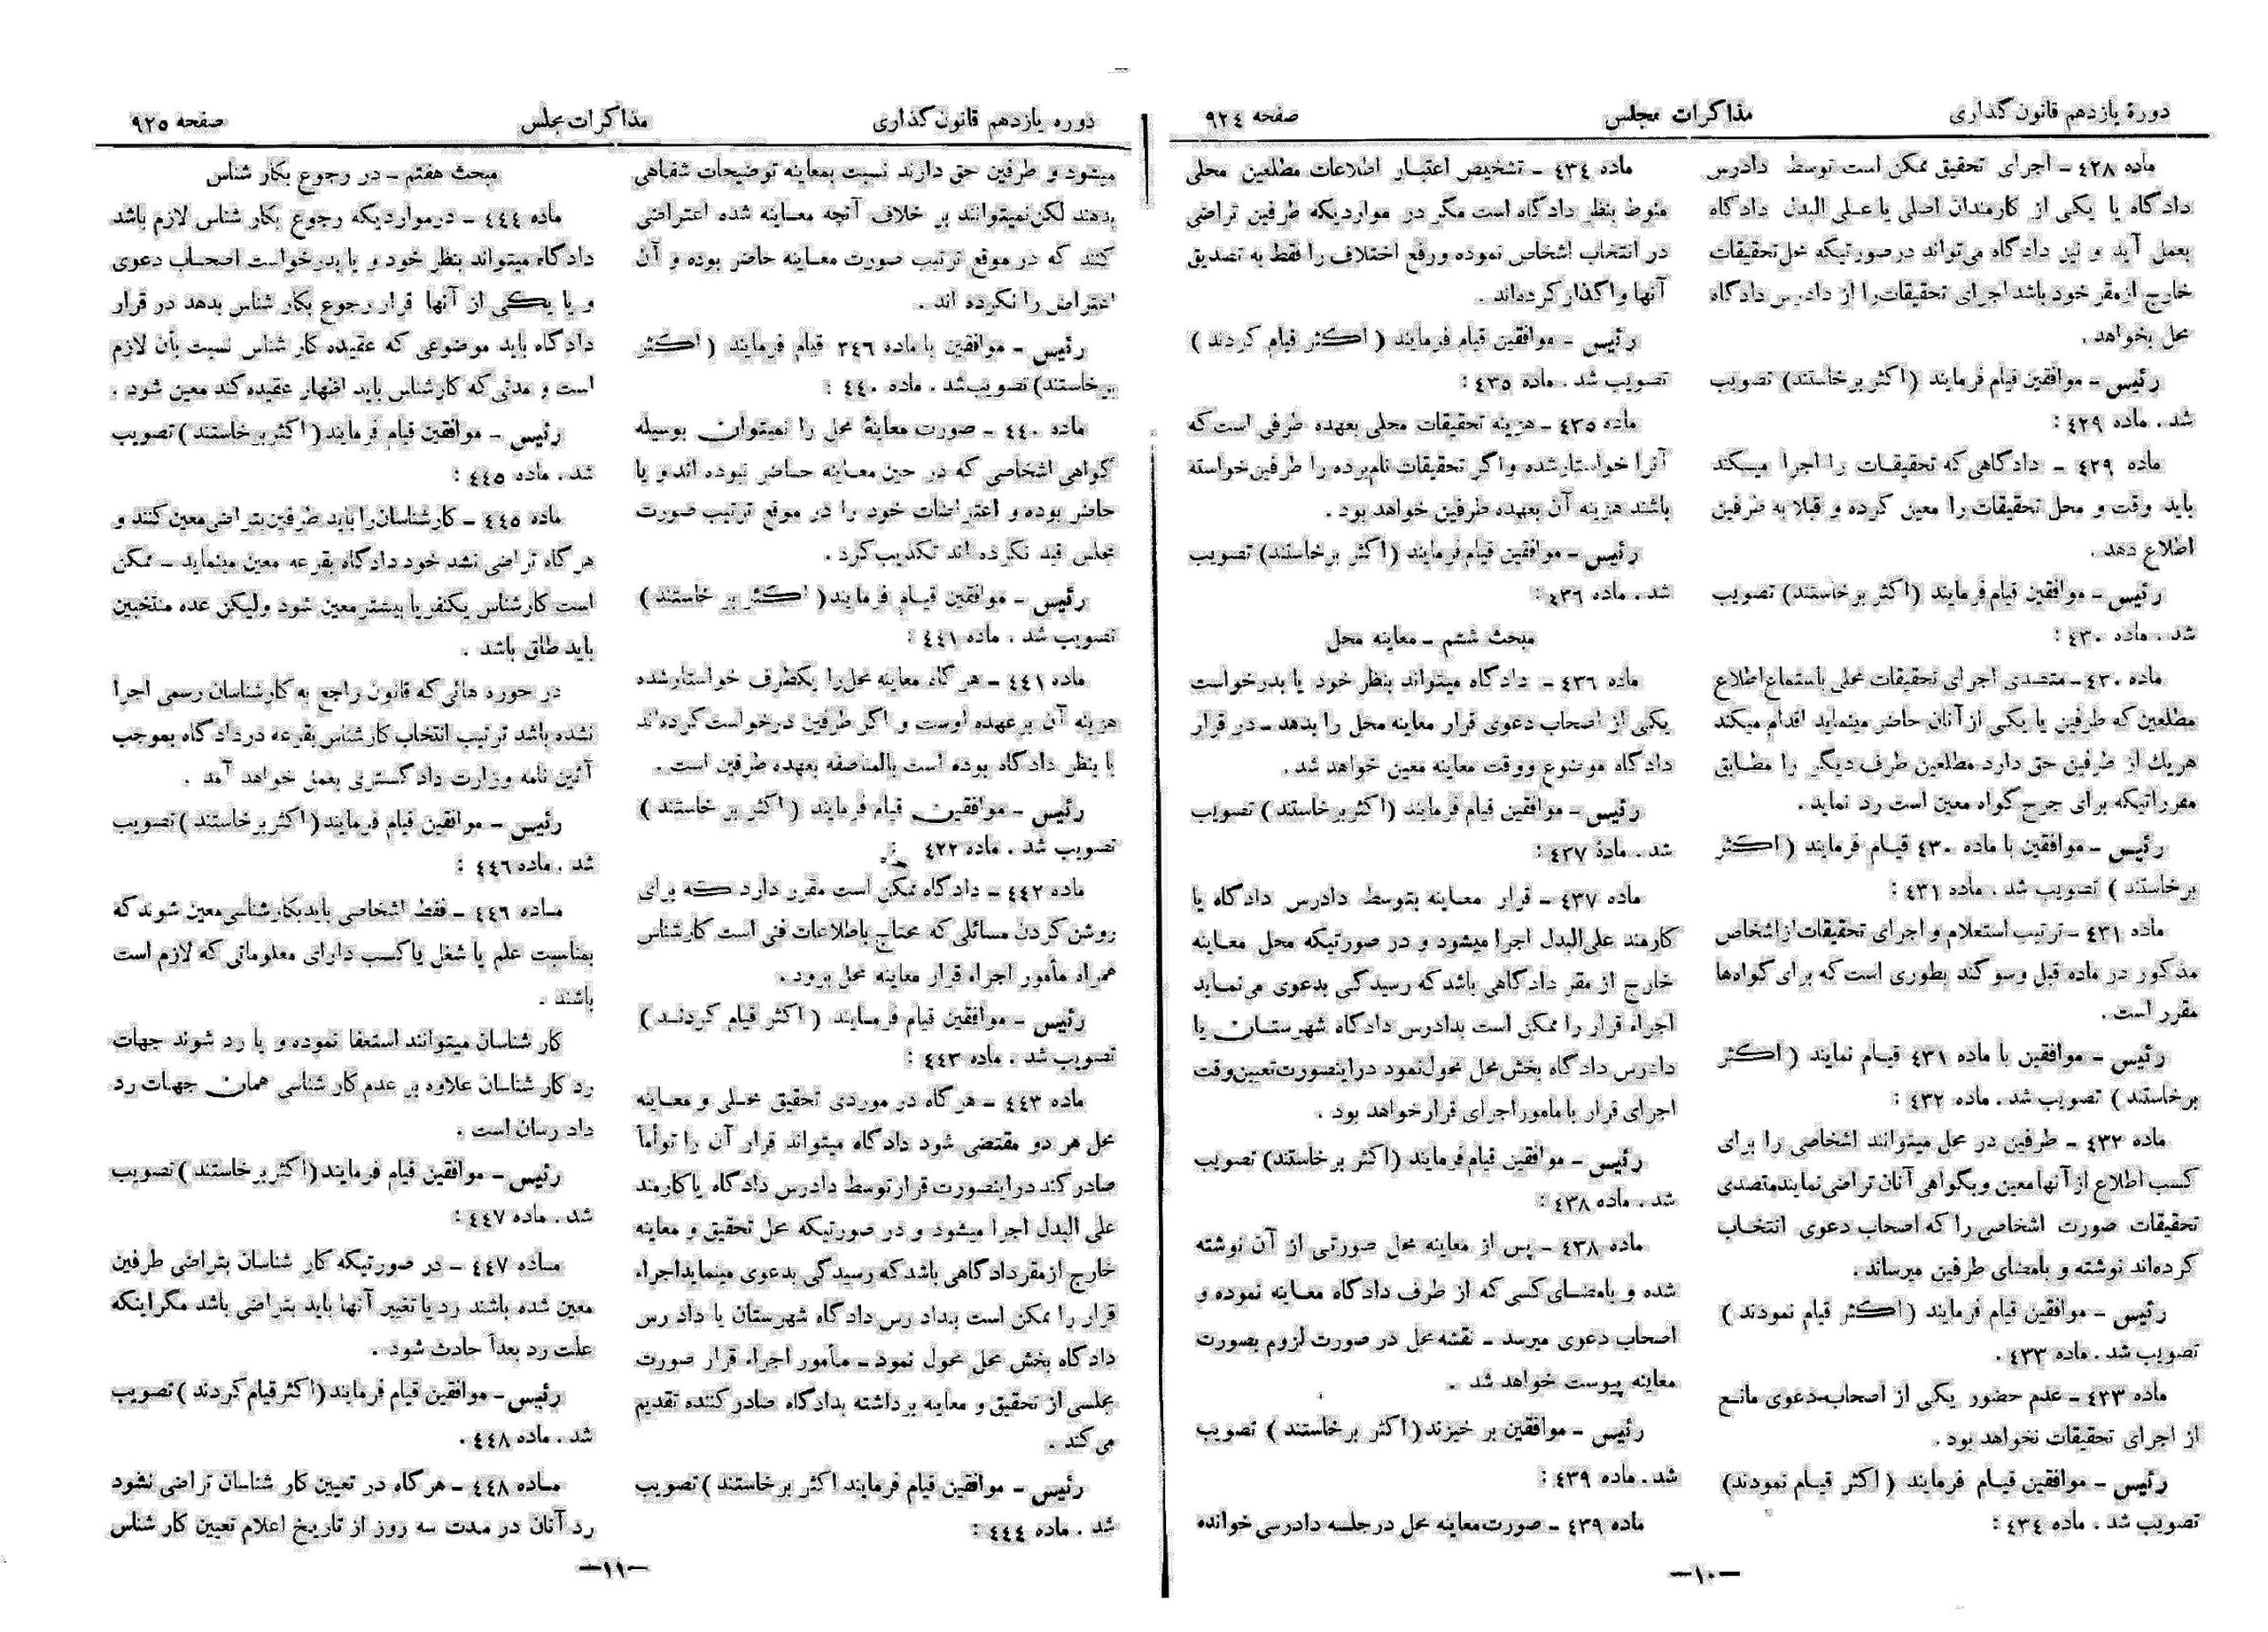 دورهٔ یازدهم قانون‌گذاری
مذاکرات مجلس
صفحه ۹۲٤
ماده ٤۲۸ ـ اجرای تحقیق ممکن است توسط دادرس
دادگاه یا یکی از کارمندان اصلی یا علی البدل دادگاه
بعمل آید و نیز دادگاه می‌تواند درصورتیکه محل تحقیقات
خارج ازمقر خود باشد اجرای تحقیقات را از دادرس دادگاه
محل بخواهد .
رئیس ـ موافقین قیام فرمایند (اکثر برخاستند) تصویب
شد . ماده ٤۲۹ :
ماده ٤۲۹ ـ دادگاهی که تحقیقات را اجرا میکند
باید وقت و محل تحقیقات را معین کرده و قبلا به طرفین
اطلاع دهد .
رئیس ـ موافقین قیام فرمایند (اکثر برخاستند) تصویب
شد . ماده ٤۳۰ :
ماده ٤۳۰ ـ متصدی اجرای تحقیقات محلی باستماع اطلاع
مطلعین که طرفین یا یکی از آنان حاضر مینماید اقدام میکند
هریك از طرفین حق دارد مطلعین طرف دیگر را مطابق
مقرراتیکه برای جرح گواه معین است رد نماید .
رئیس ـ موافقین با ماده ٤۳۰ قیام فرمایند (اکثر
برخاستند) تصویب شد . ماده ٤۳۱ :
ماده ٤۳۱ ـ ترتیب استعلام و اجرای تحقیقات از اشخاص
مذکور در ماده قبل وسوگند بطوری است که برای گواه‌ها
مقرر است .
رئیس ـ موافقین با ماده ٤۳۱ قیام نمایند (اکثر
برخاستند) تصویب شد . ماده ٤۳۲ :
ماده ٤۳۲ ـ طرفین در محل میتوانند اشخاصی را برای
کسب اطلاع از آنها معین و بگواهی آنان تراضی نمایند متصدی
تحقیقات صورت اشخاصی را که اصحاب دعوی انتخاب
کرده‌اند نوشته و بامضای طرفین میرساند .
رئیس ـ موافقین قیام فرمایند (اکثر قیام نمودند)
تصویب شد . ماده ٤۳۳ .
ماده ٤۳۳ ـ عدم حضور یکی از اصحاب دعوی مانع
از اجرای تحقیقات نخواهد بود .
رئیس ـ موافقین قیام فرمایند (اکثر قیام نمودند)
تصویب شد . ماده ٤۳٤ :
ماده ٤۳٤ ـ تشخیص اعتبار اطلاعات مطلعین محلی
منوط بنظر دادگاه است مگر در مواردیکه طرفین تراضی
در انتخاب اشخاص نموده ورفع اختلاف را فقط به تصدیق
آنها واگذار کرده‌اند .
رئیس ـ موافقین قیام فرمایند (اکثر قیام کردند)
تصویب شد . ماده ٤۳٥ :
ماده ٤۳٥ ـ هزینه تحقیقات محلی بعهده طرفی است که
آنرا خواستار شده و اگر تحقیقات نام‌برده را طرفین خواسته
باشند هزینه آن بعهده طرفین خواهد بود .
رئیس ـ موافقین قیام فرمایند (اکثر برخاستند) تصویب
شد . ماده ٤۳٦ :
مبحث ششم ـ معاینه محل
ماده ٤۳٦ ـ دادگاه میتواند بنظر خود یا بدرخواست
یکی از اصحاب دعوی قرار معاینه محل را بدهد ـ در قرار
دادگاه موضوع ووقت معاینه معین خواهد شد .
رئیس ـ موافقین قیام فرمایند (اکثر برخاستند) تصویب
شد . مادهٔ ٤۳۷ :
ماده ٤۳۷ ـ قرار معاینه بتوسط دادرس دادگاه یا
کارمند علی‌البدل اجرا میشود و در صورتیکه محل معاینه
خارج از مقر دادگاهی باشد که رسیدگی بدعوی می‌نماید
اجراء قرار را ممکن است بدادرس دادگاه شهرستان یا
دادرس دادگاه بخش محل محول نمود دراینصورت تعیین وقت
اجرای قرار با مامور اجرای قرار خواهد بود .
رئیس ـ موافقین قیام فرمایند (اکثر برخاستند) تصویب
شد . ماده ٤۳۸ :
ماده ٤۳۸ ـ پس از معاینه محل صورتی از آن نوشته
شده و بامضای کسی که از طرف دادگاه معاینه نموده و
اصحاب دعوی میرسد ـ نقشه محل در صورت لزوم بصورت
معاینه پیوست خواهد شد .
رئیس ـ موافقین بر خیزند (اکثر برخاستند) تصویب
شد . ماده ٤۳۹ :
ماده ٤۳۹ ـ صورت معاینه محل در جلسه دادرسی خوانده
—۱۰—
دوره یازدهم قانون گذاری
مذاکرات مجلس
صفحه ۹۲٥
میشود و طرفین حق دارند نسبت بمعاینه توضیحات شفاهی
بدهند لکن نمیتوانند بر خلاف آنچه معاینه شده اعتراضی
کنند که در موقع ترتیب صورت معاینه حاضر بوده و آن
اعتراض را نکرده اند .
رئیس ـ موافقین با ماده ۳٤٦ قیام فرمایند (اکثر
برخاستند) تصویب شد . ماده ٤٤۰ :
ماده ٤٤۰ ـ صورت معاینهٔ محل را نمیتوان بوسیله
گواهی اشخاصی که در حین معاینه حاضر نبوده اند و یا
حاضر بوده و اعتراضات خود را در موقع ترتیب صورت
مجلس قید نکرده اند تکذیب کرد .
رئیس ـ موافقین قیام فرمایند (اکثر بر خاستند)
تصویب شد . ماده ٤٤۱ :
ماده ٤٤۱ ـ هر گاه معاینه محل را یکطرف خواستار شده
هزینه آن برعهده اوست و اگر طرفین درخواست کرده‌اند
یا بنظر دادگاه بوده است بالمناصفه بعهده طرفین است .
رئیس ـ موافقین قیام فرمایند (اکثر بر خاستند)
تصویب شد . ماده ٤۲۲
ماده ٤٤۲ ـ دادگاه ممکن است مقرر دارد که برای
روشن کردن مسائلی که محتاج باطلاعات فنی است کارشناس
همراه مأمور اجراء قرار معاینه محل برود .
رئیس ـ موافقین قیام فرمایند (اکثر قیام کردند)
تصویب شد . ماده ٤٤۳ :
ماده ٤٤۳ ـ هر گاه در موردی تحقیق محلی و معاینه
محل هر دو مقتضی شود دادگاه میتواند قرار آن را توأماً
صادر کند دراینصورت قرار توسط دادرس دادگاه یا کارمند
علی البدل اجرا میشود و در صورتیکه محل تحقیق و معاینه
خارج ازمقر دادگاهی باشد که رسیدگی بدعوی مینماید اجراء
قرار را ممکن است بداد رس دادگاه شهرستان یا داد رس
دادگاه بخش محل محول نمود ـ مأمور اجراء قرار صورت
مجلسی از تحقیق و معاینه برداشته بدادگاه صادر کننده تقدیم
می کند .
رئیس ـ موافقین قیام فرمایند اکثر بر خاستند) تصویب
شد . ماده ٤٤٤ :
مبحث هفتم ـ در رجوع بکار شناس
ماده ٤٤٤ ـ درمواردیکه رجوع بکار شناس لازم باشد
دادگاه میتواند بنظر خود و یا بدرخواست اصحاب دعوی
و یا یکی از آنها قرار رجوع بکار شناس بدهد در قرار
دادگاه باید موضوعی که عقیده کار شناس نسبت بآن لازم
است و مدتی که کارشناس باید اظهار عقیده کند معین شود .
رئیس ـ موافقین قیام فرمایند (اکثر بر خاستند) تصویب
شد . ماده ٤٤٥ :
ماده ٤٤٥ ـ کارشناسان را باید طرفین بتراضی معین کنند و
هر گاه تراضی نشد خود دادگاه بقرعه معین مینماید ـ ممکن
است کارشناس یکنفر یا بیشتر معین شود ولیکن عده منتخبین
باید طاق باشد .
در حوزه هائی که قانون راجع به کارشناسان رسمی اجرا
نشده باشد ترتیب انتخاب کارشناس بقرعه دردادگاه بموجب
آئین نامه وزارت دادگستری بعمل خواهد آمد .
رئیس ـ موافقین قیام فرمایند (اکثر بر خاستند) تصویب
شد . ماده ٤٤٦ :
ماده ٤٤٦ ـ فقط اشخاصی باید بکارشناسی معین شوند که
بمناسبت علم یا شغل یا کسب دارای معلوماتی که لازم است
باشند .
کار شناسان میتوانند استعفا نموده و یا رد شوند جهات
رد کار شناسان علاوه بر عدم کار شناسی همان جهات رد
داد رسان است .
رئیس ـ موافقین قیام فرمایند (اکثر بر خاستند) تصویب
شد . ماده ٤٤۷ :
ماده ٤٤۷ ـ در صورتیکه کار شناسان بتراضی طرفین
معین شده باشند رد یا تغییر آنها باید بتراضی باشد مگر اینکه
علت رد بعداً حادث شود .
رئیس ـ موافقین قیام فرمایند (اکثر قیام کردند) تصویب
شد . ماده ٤٤۸ .
ماده ٤٤۸ ـ هر گاه در تعیین کار شناسان تراضی نشود
رد آنان در مدت سه روز از تاریخ اعلام تعیین کار شناس
—۱۱—